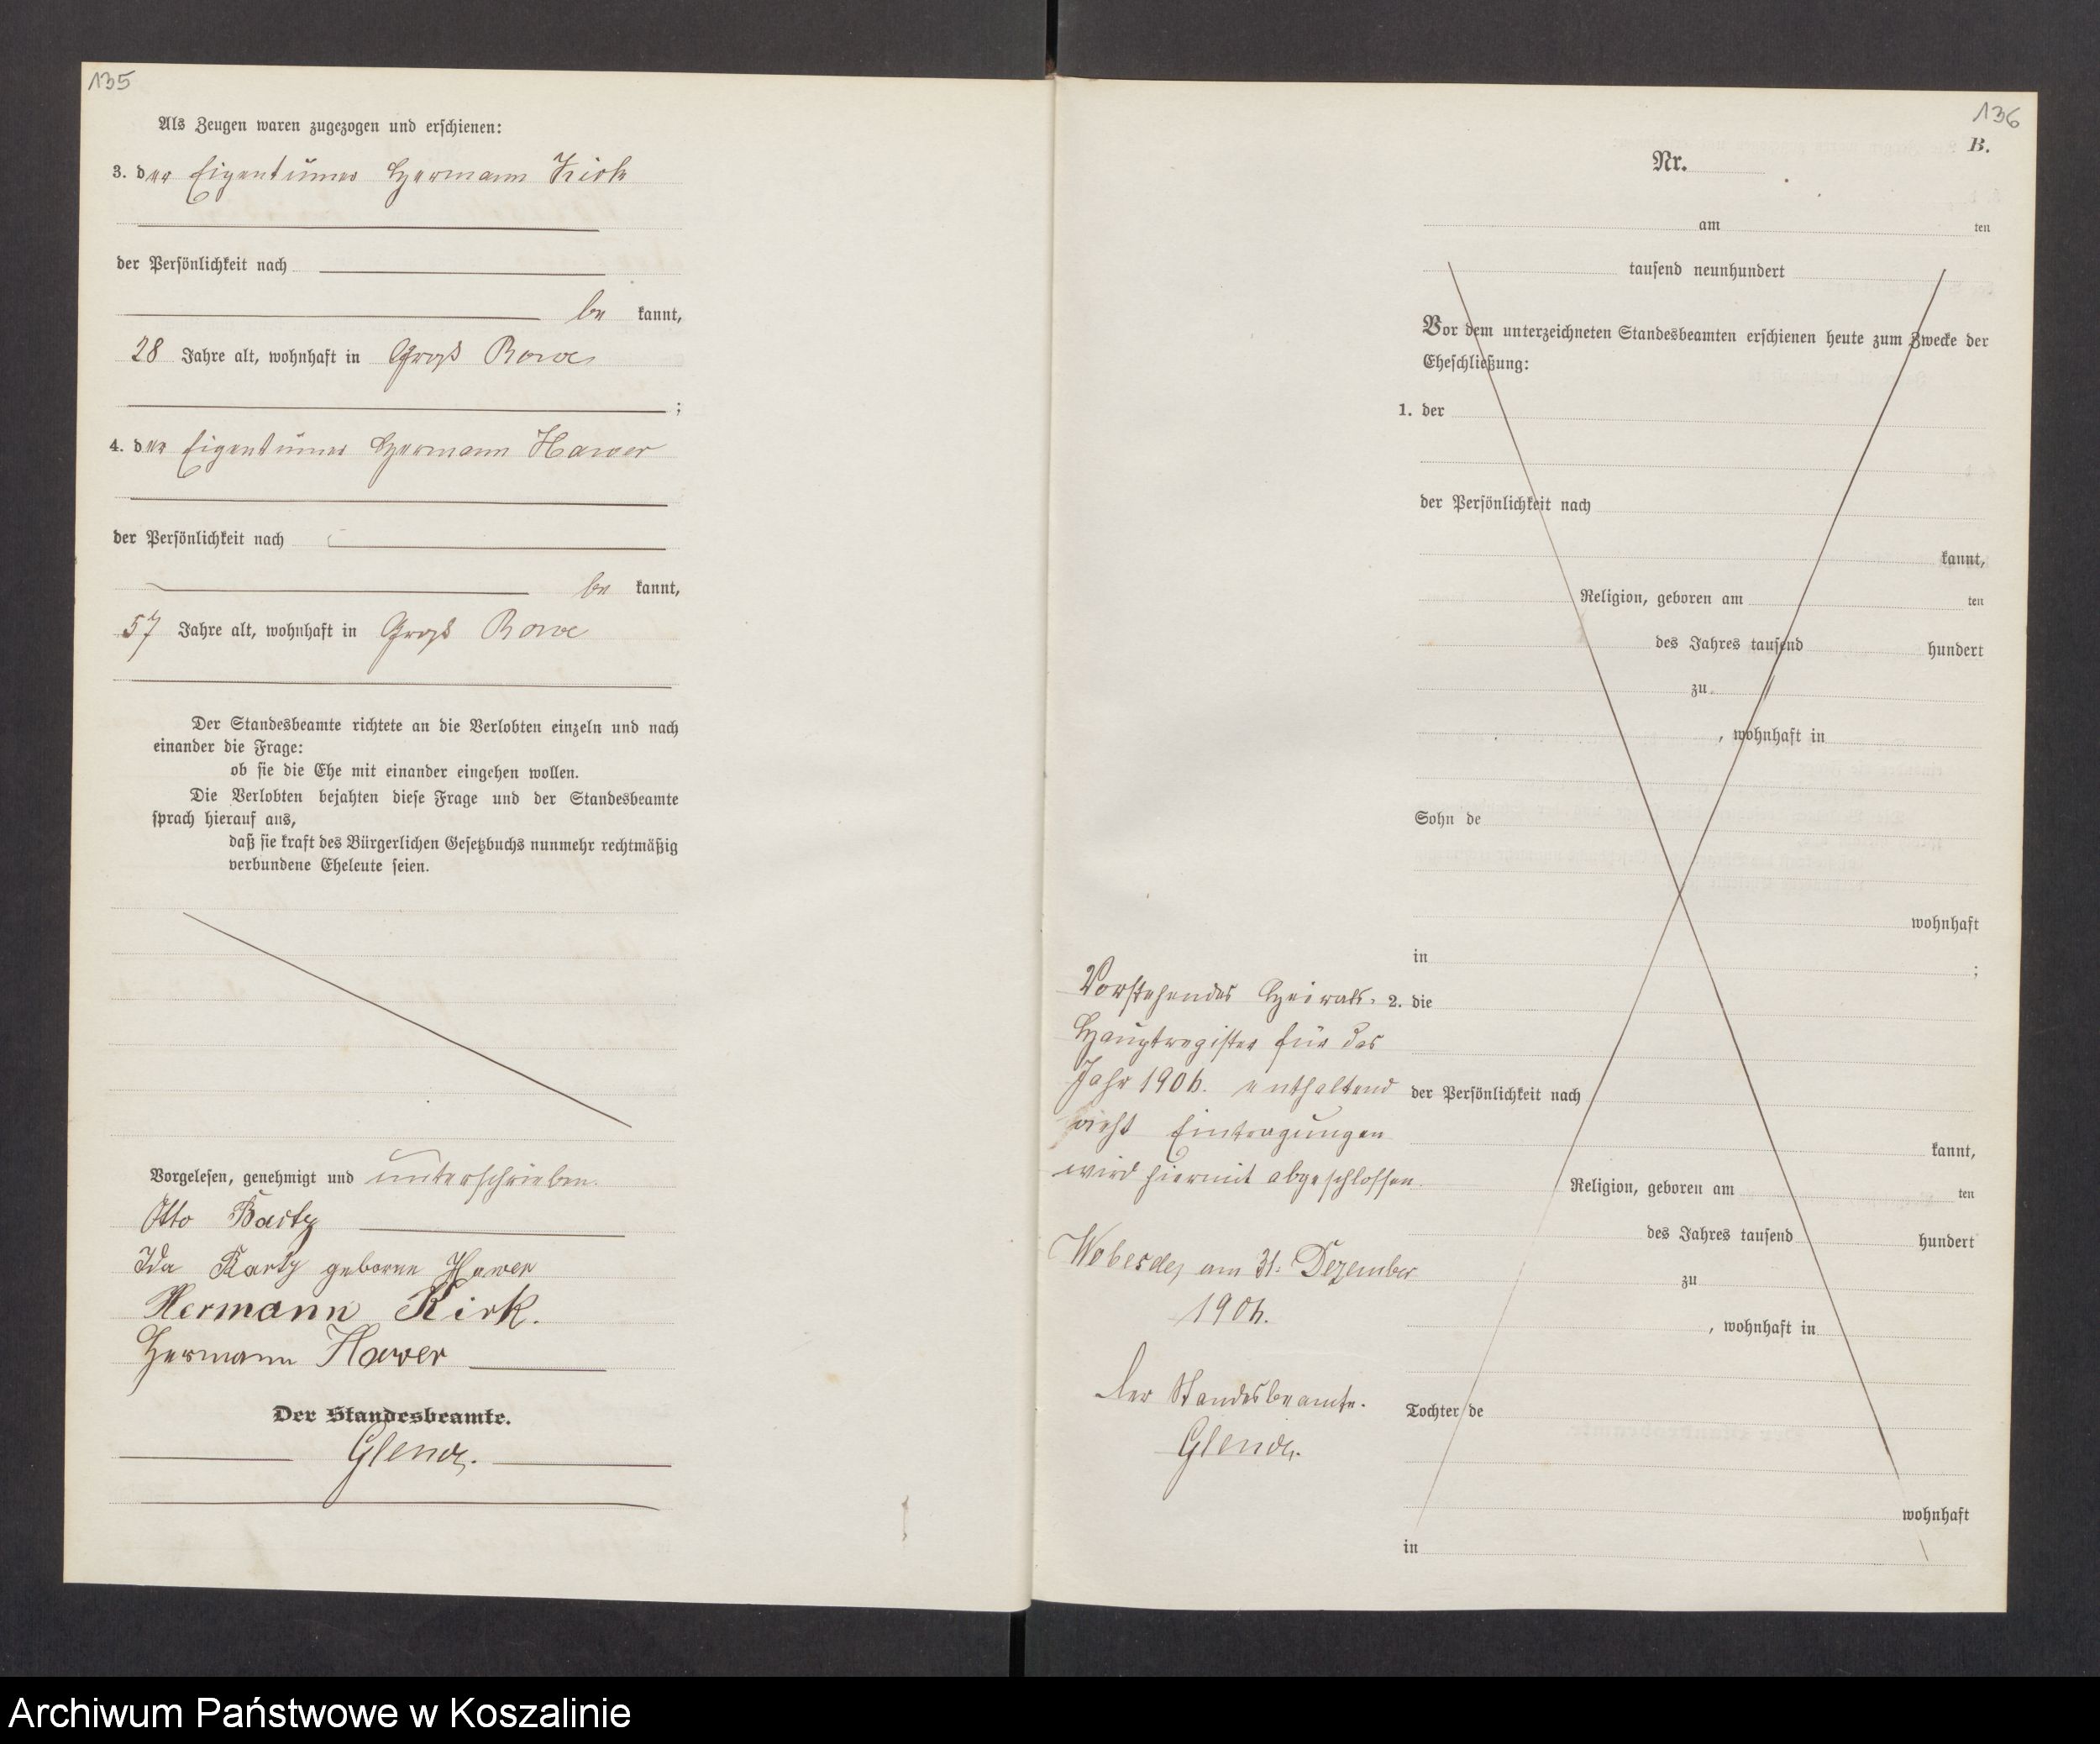 135
Als Zeugen waren zugezogen und erschienen:
3. der Eigentümer Hermann Kirk
der Persönlichkeit nach
be kannt,
28 Jahre alt, wohnhaft in Groß Rowe
;
4. der Eigentümer Hermann Hawer
der Persönlichkeit nach
be kannt,
57 Jahre alt, wohnhaft in Groß Rowe
Der Standesbeamte richtete an die Verlobten einzeln und nach
einander die Frage:
ob sie die Ehe mit einander eingehen wollen.
Die Verlobten bejahten diese Frage und der Standesbeamte
sprach hierauf aus,
daß sie kraft des Bürgerlichen Gesetzbuchs nunmehr rechtmäßig
verbundene Eheleute seien.
Vorgelesen, genehmigt und unterschrieben.
Otto
Ida geborene Hawer
Hermann Kirk.
Hermann Hawer
Der Standesbeamte.
136
B.
Nr.
am ten
tausend neunhundert
Vor dem unterzeichneten Standesbeamten erschienen heute zum Zwecke der
Eheschließung:
1. der
der Persönlichkeit nach
kannt,
Religion, geboren am ten
des Jahres tausend hundert
zu
, wohnhaft in
Sohn de
wohnhaft
in ;
2. die
der Persönlichkeit nach
kannt,
Religion, geboren am ten
des Jahres tausend hundert
zu
, wohnhaft in
Tochter de
wohnhaft
in
Vorstehendes Heirats-
Hauptregister für das
Jahr 1906. enthaltend
Eintragungen
wird hiermit abgeschlossen.
Wobesde, am 31. Dezember
1906.
Der Standesbeamte.
Archiwum Państwowe w Koszalinie